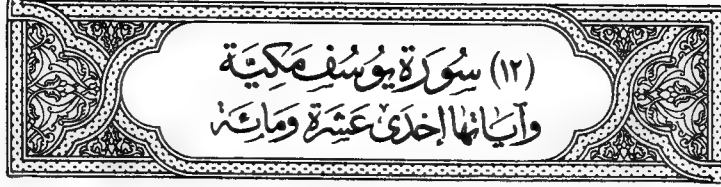 (١٢) سُورَةُ يُوسُفَ مَكِيَّة
وَآيَاتُهَا إِحْدَى عَشَرَةَ وَمِائَة